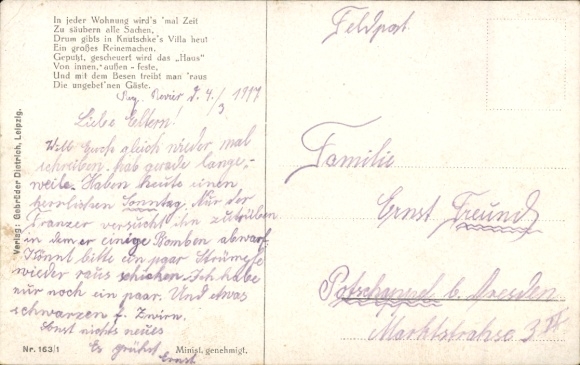 In jeder Wohnung wird's 'mal Zeit
Zu säubern alle Sachen,
Drum gibts in Knutschke's Villa heut
Ein großes Reinemachen.
Geputzt, gescheuert wird das „Haus"
Von innen, außen - feste,
Und mit dem Besen treibt man 'raus
Die ungebet'nen Gäste.
Revier d. 4./3 1917
Liebe Eltern!
Will Euch gleich wieder mal
schreiben. hab gerade lange-
weile. Haben heute einen
herrlichsten Sonntag. Nur der
Franzer versucht ihn zu trüben
in dem er einige Bomben abwarf
Könnt bitte ein paar Strümpfe
wieder raus schicken. Ich habe
nur noch ein paar. Und etwas
schwarzen Zwirn.
Sonst nichts neues
Es grüßt Ernst
Verlag: Gebrüder Dietrich, Leipzig.
Nr. 163/1
Minist. genehmigt.
Feldpost
Familie
Ernst Freund
Potschappel b. Dresden
Marktstrahse 3